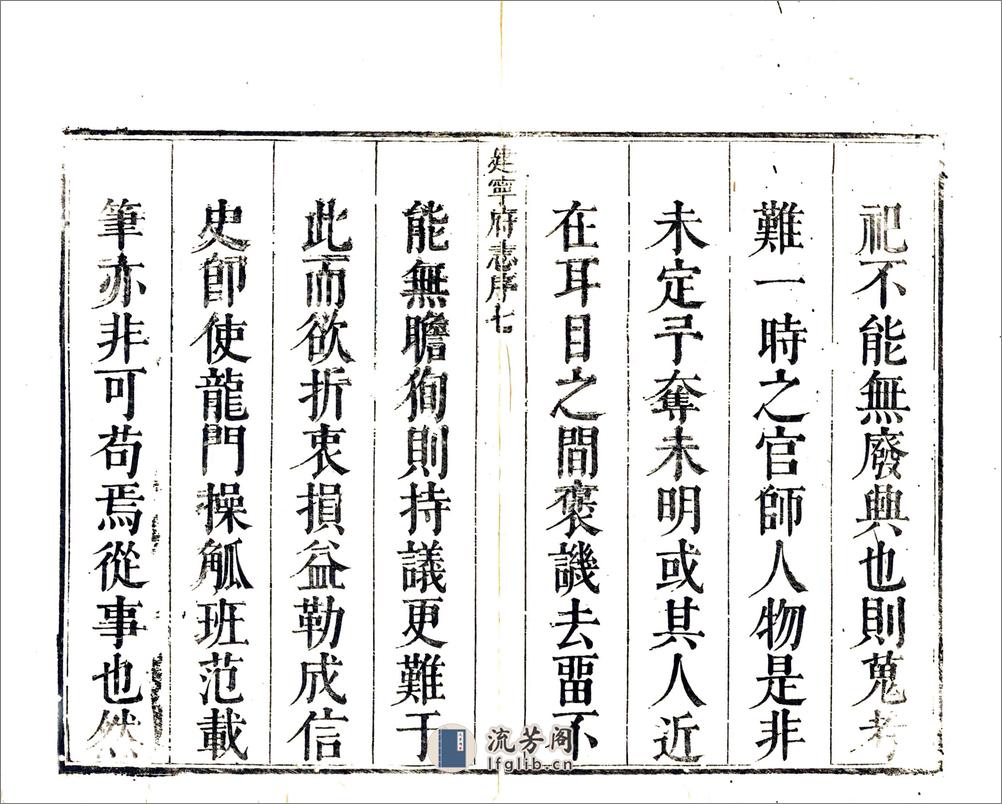 祀不能無廢興也則蒐考
難一時之官師人物是非
未定予奪未明或其人近
在耳目之間褒譏去畱不
建寧府志序七
能無瞻徇則持議更難于
此而欲折衷損益勒成信
史卽使龍門操觚班范載
筆亦非可苟焉從事也然
流芳阁
lfglib.cn